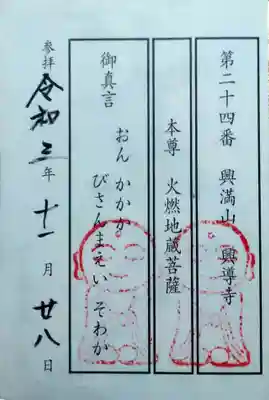 第二十四番　興満山　興導寺
本尊　火燃地蔵菩薩
御真言
おん かかか
びさんまえい そわか
参拝 令和三年十一月廿八日